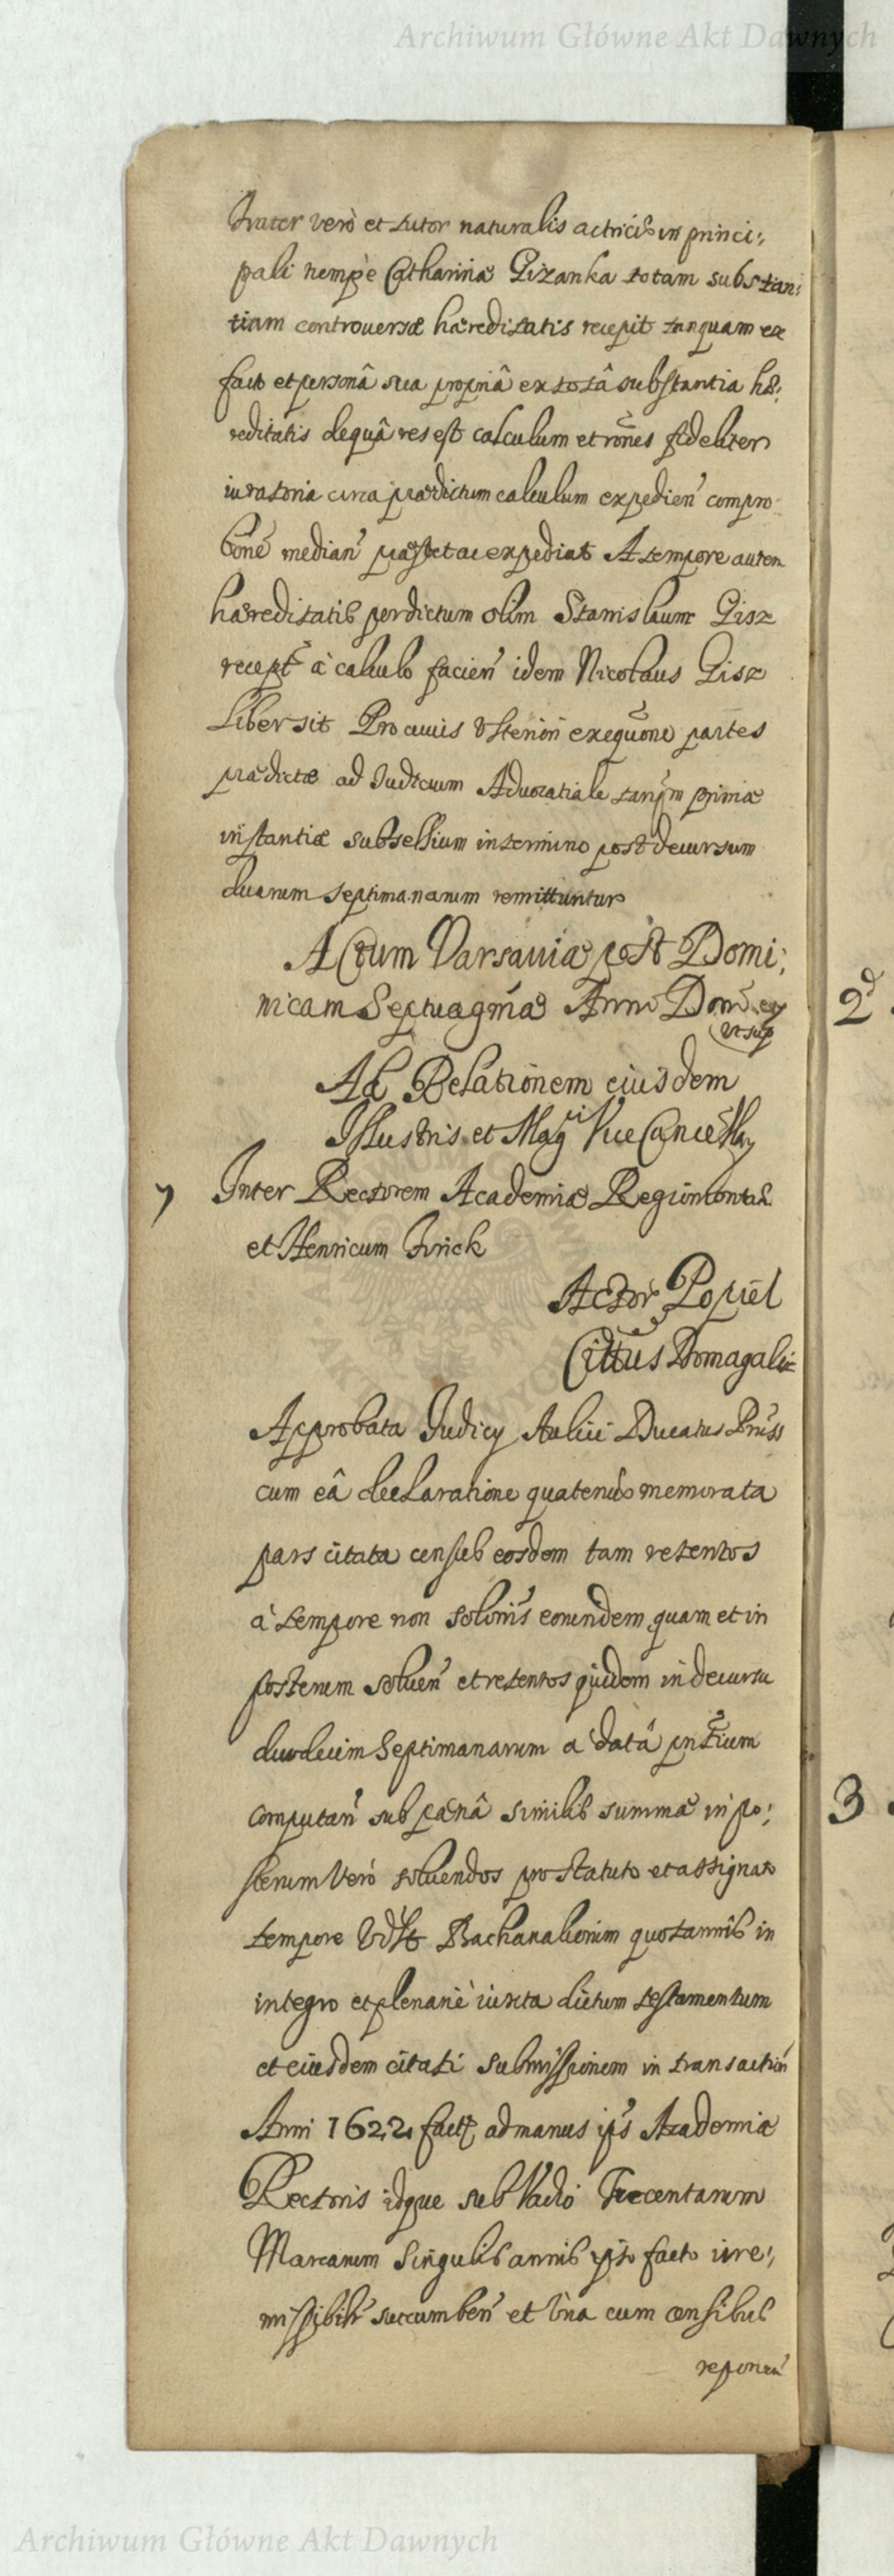 Archiwum Główne Akt Dawnych
frater verò et tutor naturalis actricis in princi:
pali nempè Catharinæ Gizanka totam substan:
tiam controversæ hæreditatis recepit tanquam ex
facto et personâ sua propriâ ex totâ substantia hæ:
reditatis de quâ res est calculum et rones fideliter
iuratoria circa prædictum calculum expedien compro
bone median præstet ac expediat A tempore autem
hæreditatis per dictum olim Stanislaum Gisz
recept à calculo facien idem Nicolaus Gisz
Liber sit Pro cuius ulteriori exequone partes
prædictæ ad Judicium Advocatiale tanqm primæ
instantiæ subsellium in termino post decursum
duarum septimanarum remittuntur
Actum Varsaviæ post Domi:
nicam Septuagmæ Anno Dom
ut sup
Ad Relationem eiusdem
Illustris et Magci Vice Cancellarij
7 Inter Rectorem Academiæ Regiomontan
et Henricum Frick
Actor Popiel
Cittus Domagalic
Approbata Judicij Aulici Ducatus Pruss
cum eâ declaratione quatenus memorata
pars citata census eosdem tam retentos
à tempore non solonis eorundem quam et in
posterum soluen et retentos quidem in decursu
duodecim Septimanarum a datâ pntium
computan sub pænâ similis summæ in po:
sterum verò soluendos pro statuto et assignato
tempore vdlt Bachanaliorum quotannis in
integro et plenariè iuxta dictum testamentum
et eiusdem citati submissionem in transaction
Anni 1622 fact ad manus ips Academiæ
Rectoris idque sub Vadio Trecentarum
Marcarum singulis annis ipso facto irre:
missibilr succumben et una cum censibus
reponen
2d
3
Archiwum Główne Akt Dawnych